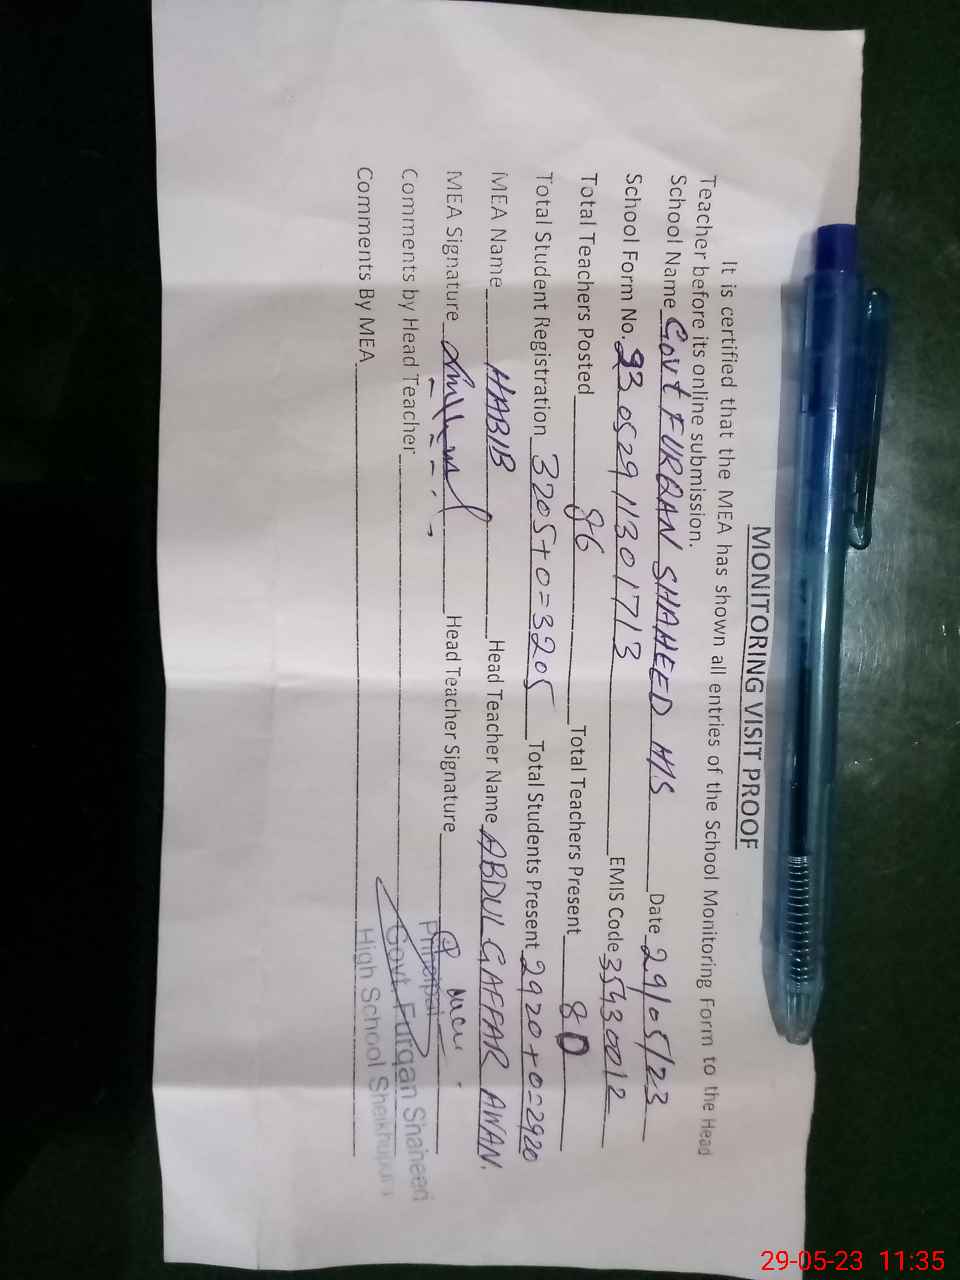 MONITORING VISIT PROOF
It is certified that the MEA has shown all entries of the School Monitoring Form to the Head
Teacher before its online submission.
School Name Govt FURQAN SHAHEED H/S Date 29/05/23
School Form No. 23 0529 11301713 EMIS Code 35430012
Total Teachers Posted 86 Total Teachers Present 80
Total Student Registration 3205+0=3205 Total Students Present 2920+0=2920
MEA Name HABIB Head Teacher Name ABDUL GAFFAR AWAN.
MEA Signature Head Teacher Signature
Principal
Comments by Head Teacher Govt. Furqan Shaheed
High School Sheikhupura
Comments By MEA
29-05-23 11:35